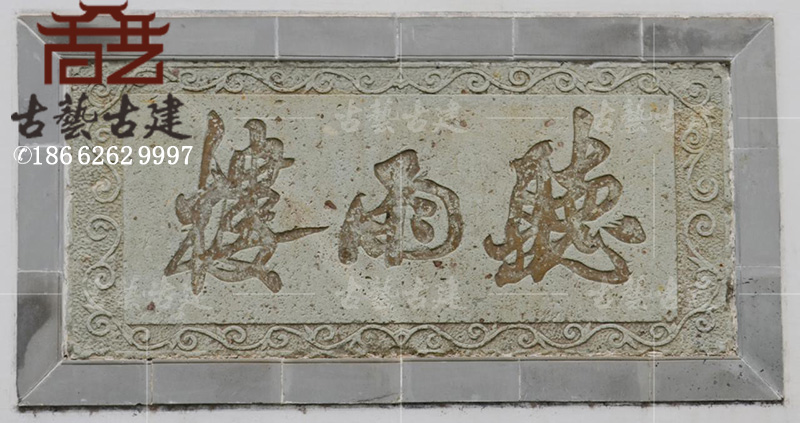 古藝古建
✆18662629997
聽雨樓
古藝古建 古藝古建
古藝古建 古藝古建 古藝古建